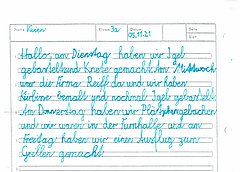 Name Klasse 3a Datum 05.11.21
Hallo, am Dienstag haben wir Igel
gebastelt und Knete gemacht. Am Mittwoch
war die Firma Reiff da und wir haben
Kürbisse bemalt und nochmal Igel gebastelt.
Am Donnerstag haben wir Plätzchen gebacken
und wir waren in der Turnhalle und am
Freitag haben wir einen Ausflug zum
Grillen gemacht.